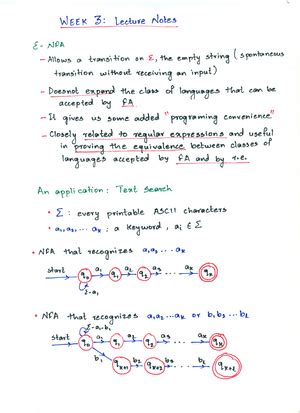 WEEK 3: Lecture Notes
ε- NFA
- Allows a transition on ε, the empty string (spontaneous
transition without receiving an input)
- Doesnot expand the class of languages that can be
accepted by FA.
- It gives us some added "programing convenience"
- Closely related to regular expressions and useful
in proving the equivalence between classes of
languages accepted by FA and by r.e.
An application: Text search
• Σ : every printable ASCII characters
• a₁, a₂, ... aₖ : a keyword, aᵢ ∈ Σ
• NFA that recognizes a₁a₂ ... aₖ
start q₀ a₁ q₁ a₂ q₂ a₃ ... aₖ qₖ
Σ-a₁
• NFA that recognizes a₁a₂ ... aₖ or b₁b₂ ... bₗ
Σ-a₁-b₁
start q₀ a₁ q₁ a₂ q₂ a₃ ... aₖ qₖ
b₁ qₖ₊₁ b₂ qₖ₊₂ b₃ ... bₗ qₖ₊ₗ